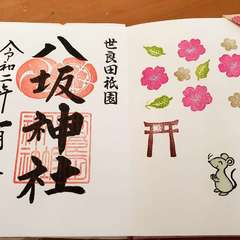 世良田祇園
八坂神社
令和二年一月